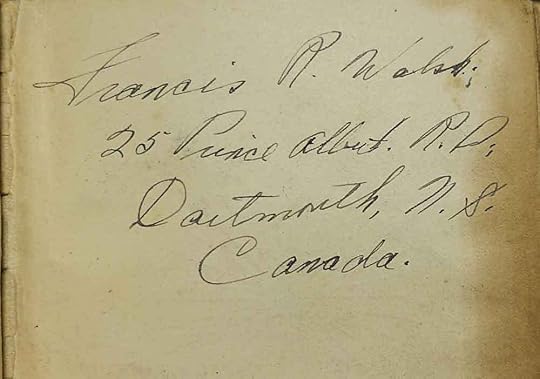 Francis R. Walsh;
25 Prince Albert. R.D;
Dartmouth, N.S.
Canada.